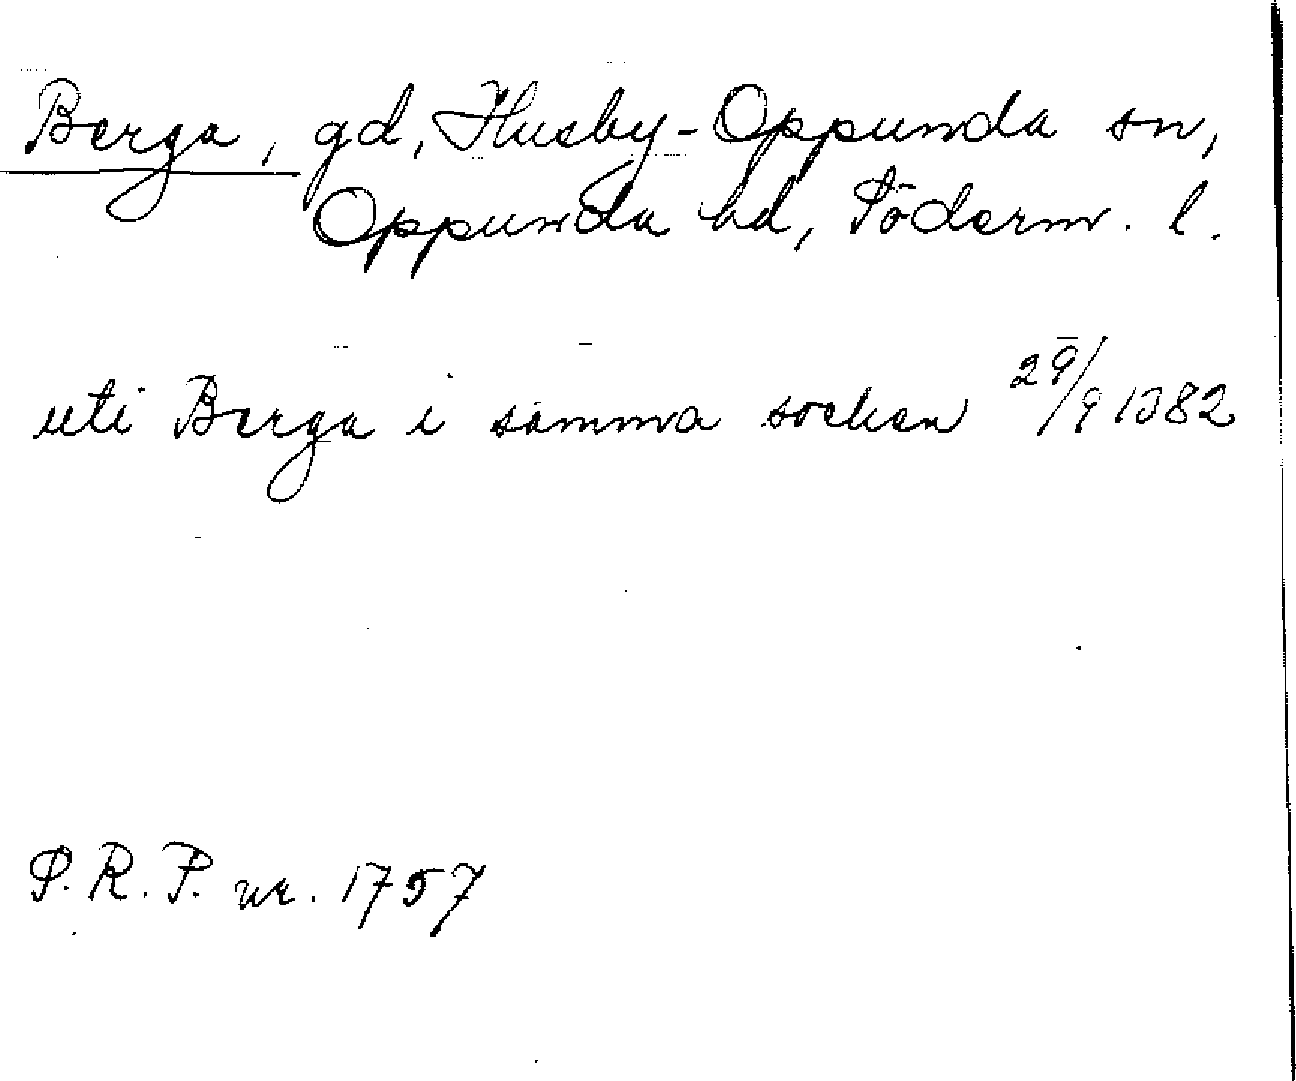 Berga, gd, Husby-Oppunda sn,
Oppunda hd, Söderm. l.
uti Berga i samma sockan 29/9 1382
S.R.P. nr. 1757